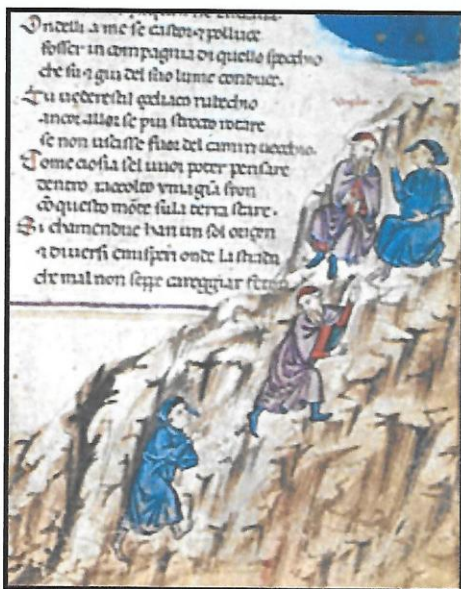 Ondelli a me se castor ⁊ polluce
fosser in compagnia di quello specchio
che su ⁊ giu del suo lume conduce.
Tu uederesti il çodiaco rubechio
ancor allorse piu stretto rotare
se non uscisse fuor del camin uecchio.
Come cio sia sel uuoi poter pensare
dentro raccolto ymagina syon
cō questo mōte su la terra stare.
Si chamendue han un sol
⁊ diuersi emisperi onde la strada
che mal non seppe careggiar feton